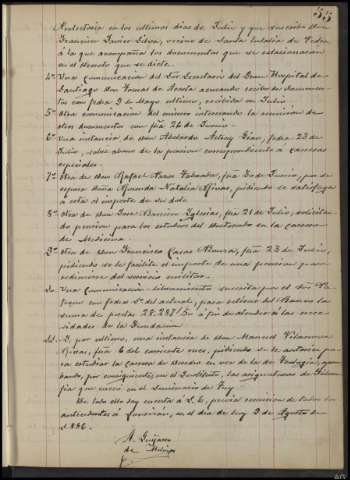 55
Protectoria en los últimos días de Julio, que suscribe Don
Francisco Luis Silva, vecino de Santa Eulalia de Vedra
á la que acompañan los documentos que se relacionarán
en el decreto que se dicte.
4ª Una comunicación del Sor Secretario del Gran Hospital de
Santiago don Tomas de Acosta acusando recibo de documen-
tos con fecha 9 de Mayo último, recibida en Julio.
5ª Otra comunicación del mismo interesando la remisión de
otros documentos con fha 26 de Junio.
6ª Una instancia de don Abelardo fecha 23 de
Julio, sobre abono de la pension correspondiente á carreras
especiales.
7ª Otra de don Rafael fha 3 de Junio, por
esposa doña Natalia Rivas, pidiendo se satisfaga
á esta el importe de su dote.
8ª Otra de don José Barreiro Iglesias, fha 21 de Julio, solicitan-
do pension para los estudios del Doctorado en la carrera
de Medicina.
9ª Otra de don Francisco Casas fha 23 de Julio,
pidiendo se le facilite el importe de una pension para
redimirse del servicio militar.
10 Una comunicación-libramiento suscrita por el Sor
con fecha 5 del actual, para retirar del Banco la
suma de pesetas 28.287 á fin de atender á las nece-
sidades de la Fundación.
11. Y, por último, una instancia de don Manuel Villanueva
Rivas, fha 6 del corriente mes, pidiendo se le autorice pa-
ra estudiar la carrera de Derecho en vez de la de Teología,
por consiguiente, en el Instituto, las asignaturas de Filoso-
fía que cursó en el Seminario de Tuy.
De todo ello doy cuenta á S. E., previa remision de todos los
antecedentes á en el día de hoy 9 de Agosto de
1886.
A. Guijarro
de